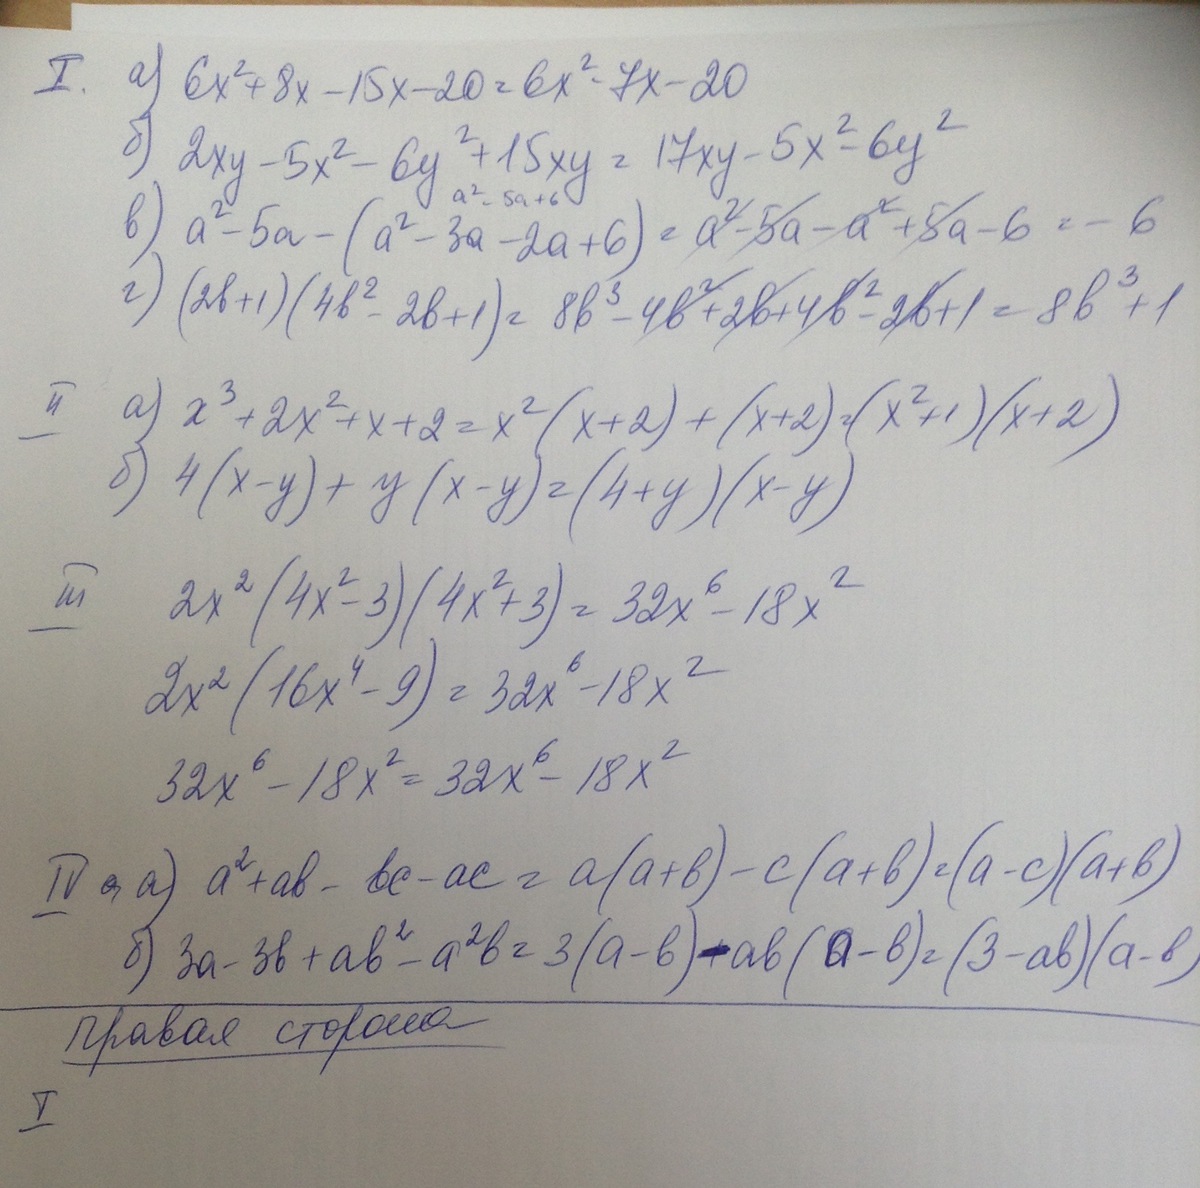 I. а) 6x²+8x-15x-20=6x²-7x-20
б) 2xy-5x²-6y²+15xy=17xy-5x²-6y²
a²-5a+6
в) a²-5a-(a²-3a-2a+6)=a²-5a-a²+5a-6=-6
г) (2b+1)(4b²-2b+1)=8b³-4b²+2b+4b²-2b+1=8b³+1
II а) x³+2x²+x+2=x²(x+2)+(x+2)=(x²+1)(x+2)
б) 4(x-y)+y(x-y)=(4+y)(x-y)
III 2x²(4x²-3)(4x²+3)=32x⁶-18x²
2x²(16x⁴-9)=32x⁶-18x²
32x⁶-18x²=32x⁶-18x²
IV а) a²+ab-bc-ac=a(a+b)-c(a+b)=(a-c)(a+b)
б) 3a-3b+ab²-a²b=3(a-b)-ab(a-b)=(3-ab)(a-b)
Правая сторона
I